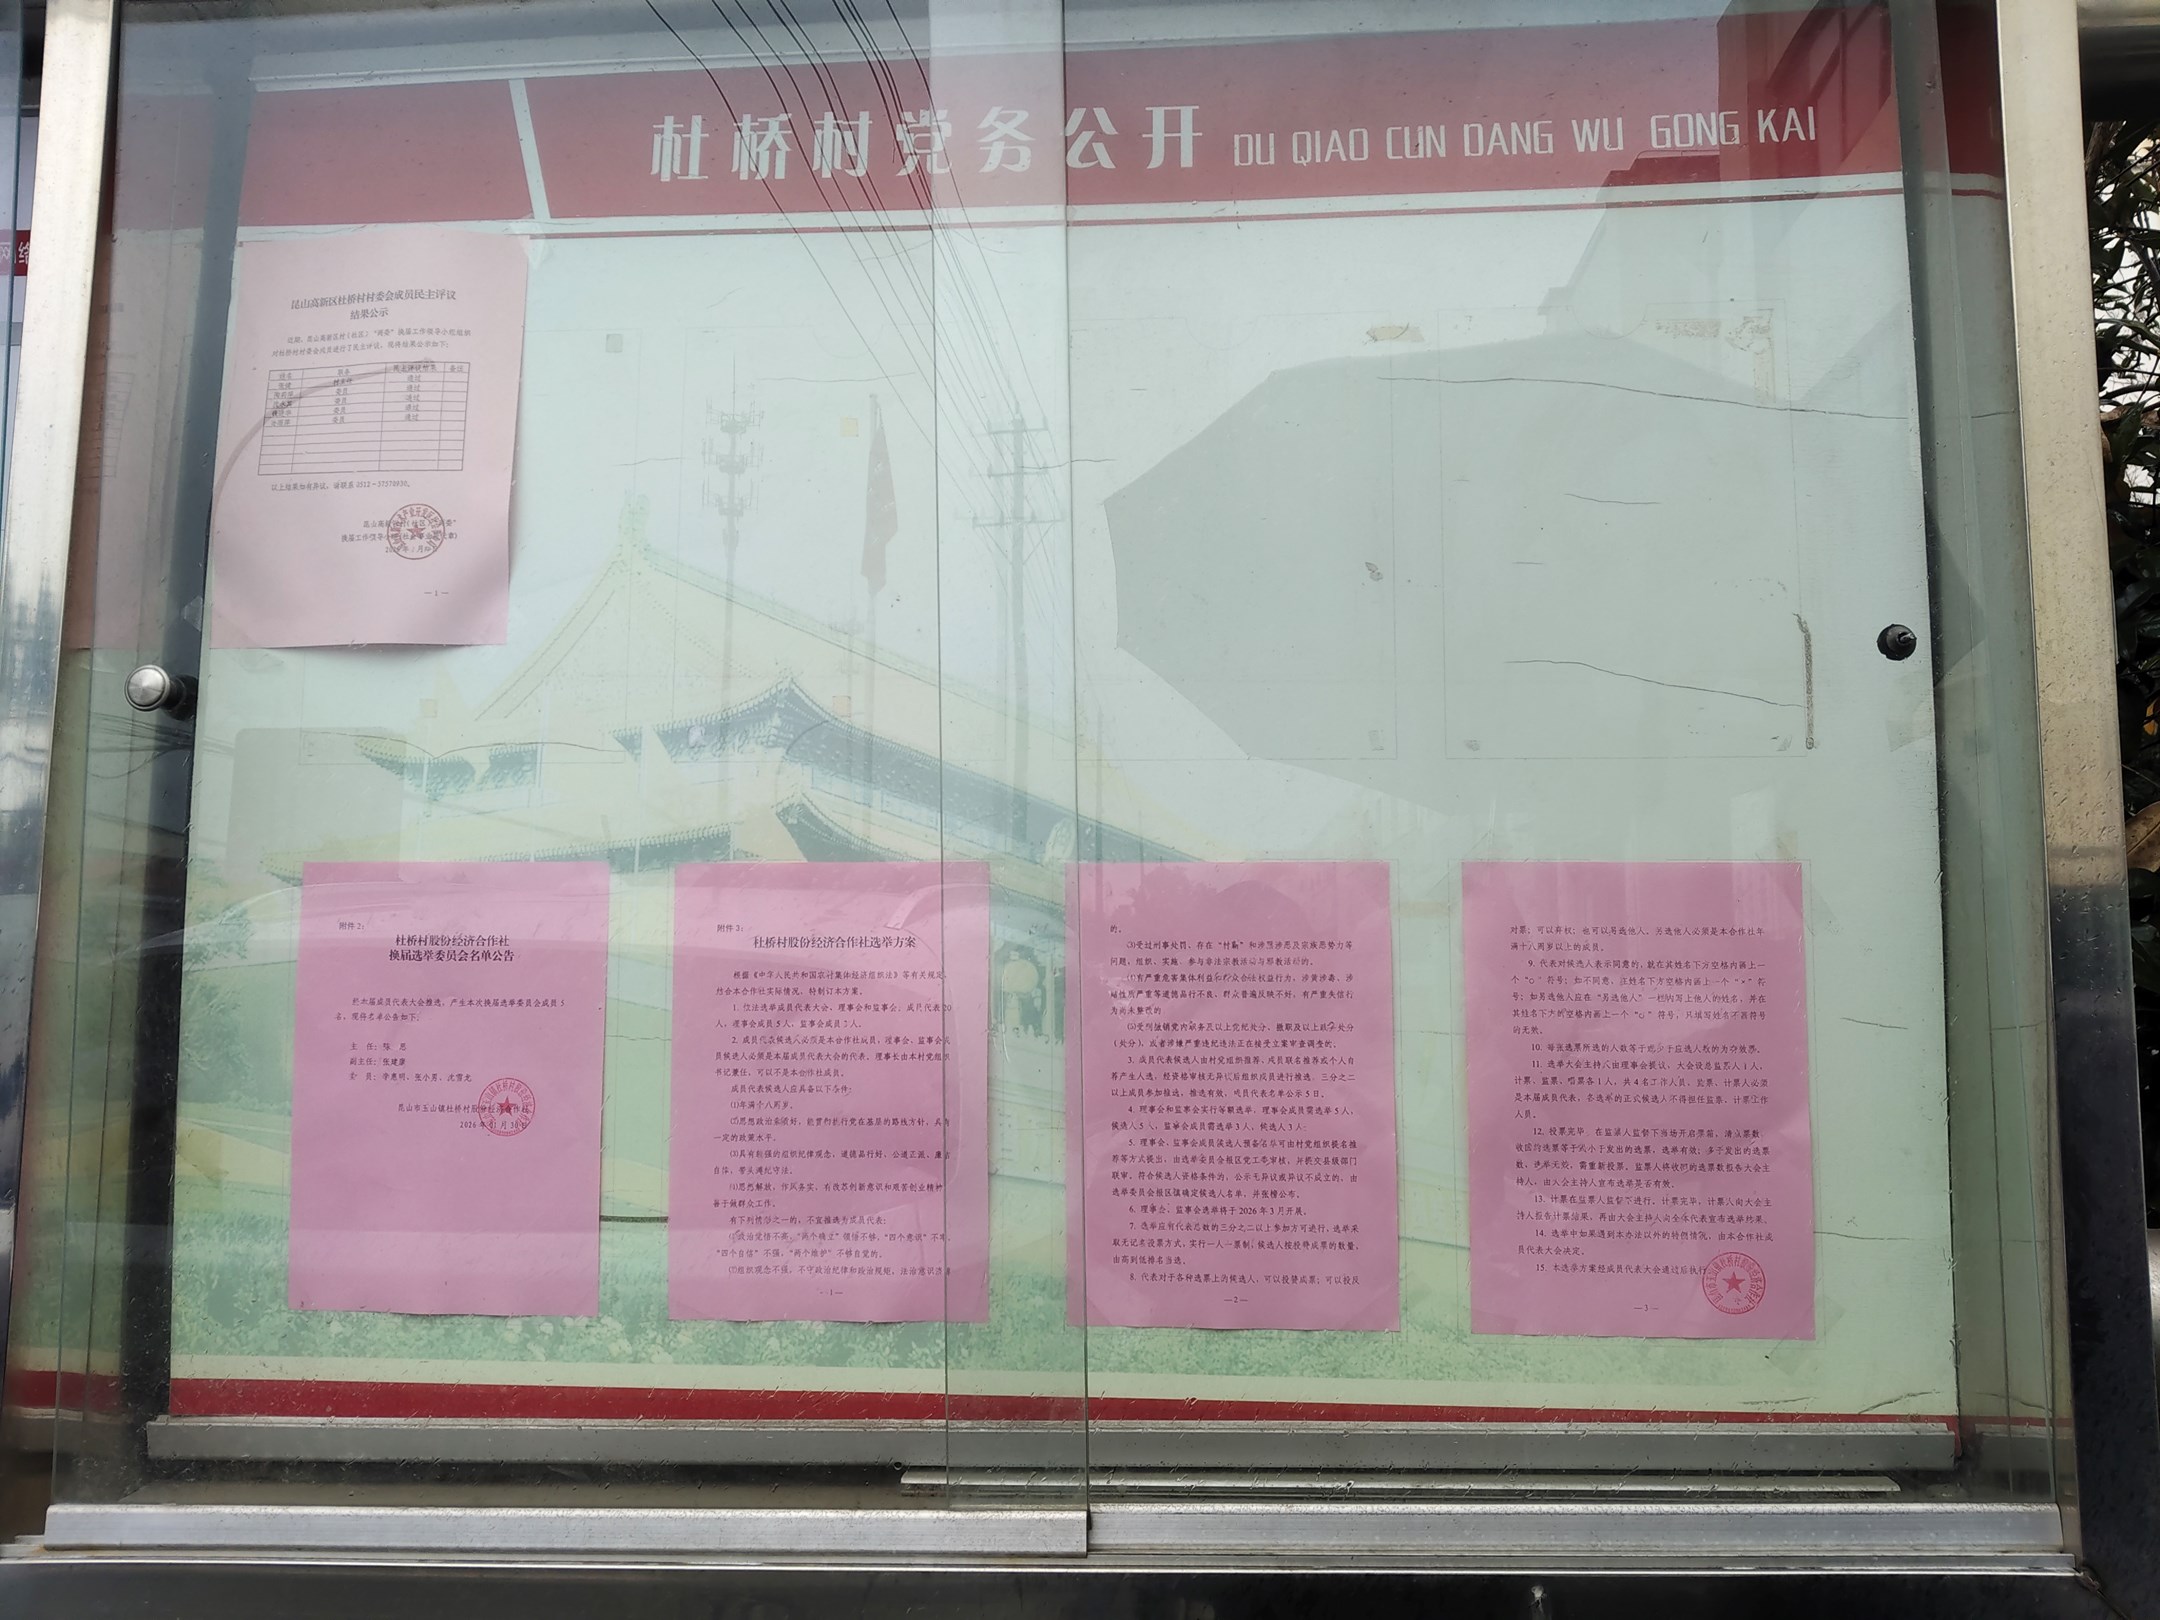 杜桥村党务公开 DU QIAO CUN DANG WU GONG KAI
昆山高新区杜桥村村委会成员民主评议
结果公示
近期，昆山高新区村（社区）“两委”换届工作领导小组组织
对杜桥村村委会成员进行了民主评议，现将结果公示如下：
姓名 职务 民主评议结果 备注
通过
委员 通过
委员 通过
委员 通过
委员 通过
以上结果如有异议，请联系 0512－57570930。
昆山高新区村（社区）“两委”
换届工作领导小组
— 1 —
附件 2：
杜桥村股份经济合作社
换届选举委员会名单公告
经本届成员代表大会推选，产生本次换届选举委员会成员 5
名，现将名单公告如下：
主 任：陈 思
副主任：张建康
委 员：李惠明、张小男、沈雪龙
昆山市玉山镇杜桥村股份经济合作社
2026 年 01 月 30 日
附件 3：
杜桥村股份经济合作社选举方案
根据《中华人民共和国农村集体经济组织法》等有关规定，
结合本合作社实际情况，特制订本方案。
1. 依法选举成员代表大会、理事会和监事会；成员代表 20
人，理事会成员 5 人，监事会成员 3 人。
2. 成员代表候选人必须是本合作社成员，理事会、监事会成
员候选人必须是本届成员代表大会的代表。理事长由本村党组织
书记兼任，可以不是本合作社成员。
成员代表候选人应具备以下条件：
⑴年满十八周岁。
⑵思想政治素质好，能贯彻执行党在基层的路线方针，具有
一定的政策水平。
⑶具有较强的组织纪律观念，道德品行好、公道正派、廉洁
自律，带头遵纪守法。
⑷思想解放，作风务实，有改革创新意识和艰苦创业精神，
善于做群众工作。
有下列情形之一的，不宜推选为成员代表：
⑴政治觉悟不高，“两个确立”领悟不够，“四个意识”不牢、
“四个自信”不强，“两个维护”不够自觉的。
⑵组织观念不强，不守政治纪律和政治规矩，法治意识淡薄
— 1 —
的。
⑶受过刑事处罚、存在“村霸”和涉黑涉恶及宗族恶势力等
问题，组织、实施、参与非法宗教活动与邪教活动的。
⑷有严重危害集体利益和群众合法权益行为，涉黄涉毒、涉
赌性质严重等道德品行不良、群众普遍反映不好，有严重失信行
为尚未整改的
⑸受到撤销党内职务及以上党纪处分、撤职及以上政务处分
（处分），或者涉嫌严重违纪违法正在接受立案审查调查的。
3. 成员代表候选人由村党组织推荐、成员联名推荐或个人自
荐产生人选，经资格审核无异议后组织成员进行推选，三分之二
以上成员参加推选，推选有效，成员代表名单公示 5 日。
4. 理事会和监事会实行等额选举，理事会成员需选举 5 人，
候选人 5 人，监事会成员需选举 3 人，候选人 3 人；
5. 理事会、监事会成员候选人预备名单可由村党组织提名推
荐等方式提出，由选举委员会报区党工委审核，并提交县级部门
联审。符合候选人资格条件的，公示无异议或异议不成立的，由
选举委员会报区镇确定候选人名单，并张榜公布。
6. 理事会、监事会选举将于 2026 年 3 月开展。
7. 选举应有代表总数的三分之二以上参加方可进行，选举采
取无记名投票方式，实行一人一票制，候选人按投赞成票的数量，
由高到低排名当选。
8. 代表对于各种选票上的候选人，可以投赞成票；可以投反
—2—
对票；可以弃权；也可以另选他人，另选他人必须是本合作社年
满十八周岁以上的成员。
9. 代表对候选人表示同意的，就在其姓名下方空格内画上一
个“○”符号；如不同意，在姓名下方空格内画上一个“×”符
号；如另选他人应在“另选他人”一栏内写上他人的姓名，并在
其姓名下方的空格内画上一个“○”符号，只填写姓名不画符号
的无效。
10. 每张选票所选的人数等于或少于应选人数的为有效票。
11. 选举大会主持人由理事会提议，大会设总监票人 1 人，
计票、监票、唱票各 1 人，共 4 名工作人员，监票、计票人必须
是本届成员代表，各选举的正式候选人不得担任监票、计票工作
人员。
12. 投票完毕，在监票人监督下当场开启票箱，清点票数，
收回的选票等于或小于发出的选票，选举有效；多于发出的选票
数，选举无效，需重新投票。监票人将收回的选票数报告大会主
持人，由大会主持人宣布选举是否有效。
13. 计票在监票人监督下进行。计票完毕，计票人向大会主
持人报告计票结果，再由大会主持人向全体代表宣布选举结果。
14. 选举中如果遇到本办法以外的特例情况，由本合作社成
员代表大会决定。
15. 本选举方案经成员代表大会通过后执行
—3—